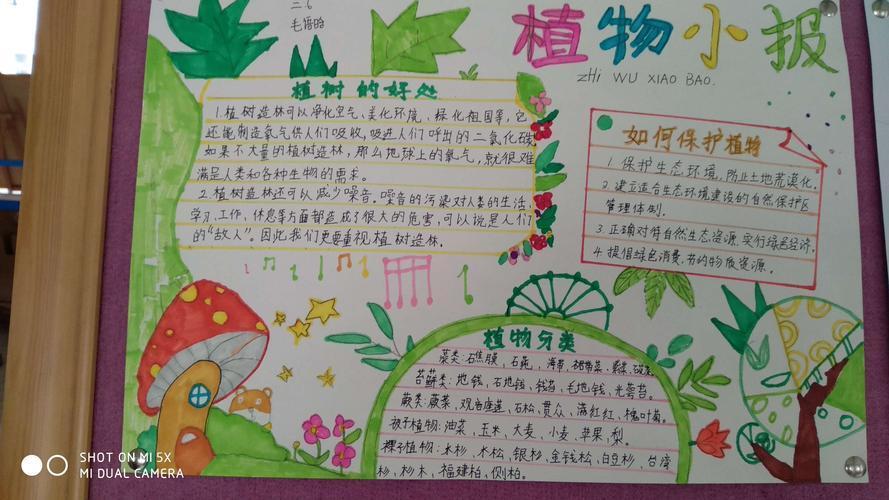 二.6
毛语晗
植物小报
ZHI WU XIAO BAO.
植树的好处
1.植树造林可以净化空气、美化环境、绿化祖国等,它
还能制造氧气供人们吸收,吸进人们呼出的二氧化碳,
如果不大量的植树造林,那么地球上的氧气,就很难
满足人类和各种生物的需求。
2.植树造林还可以减少噪音。噪音的污染对人类的生活、
学习、工作、休息等方面都造成了很大的危害,可以说是人们
的“敌人”。因此我们更要重视植树造林。
如何保护植物
1.保护生态环境,防止土地荒漠化.
2.建立适合生态环境建设的自然保护区
管理体制.
3.正确对待自然生态资源,实行绿色经济.
4.提倡绿色消费,节约物质资源.
植物分类
藻类:石莼、海带、紫菜
苔藓类:地钱、石地钱、钱苔、毛地钱、光萼苔。
蕨类:蕨菜、观音座莲、石松、贯众、满江红、槐叶苹。
被子植物:油菜、玉米、大麦、小麦、苹果、梨。
裸子植物:水杉、水松、银杉、金钱松、白豆杉、台湾
杉、杉木、福建柏、侧柏。
SHOT ON MI 5X
MI DUAL CAMERA